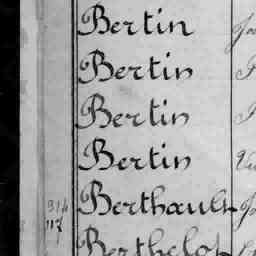 Bertin
Bertin
Bertin
Bertin
314 Berthault
117 Berthelot